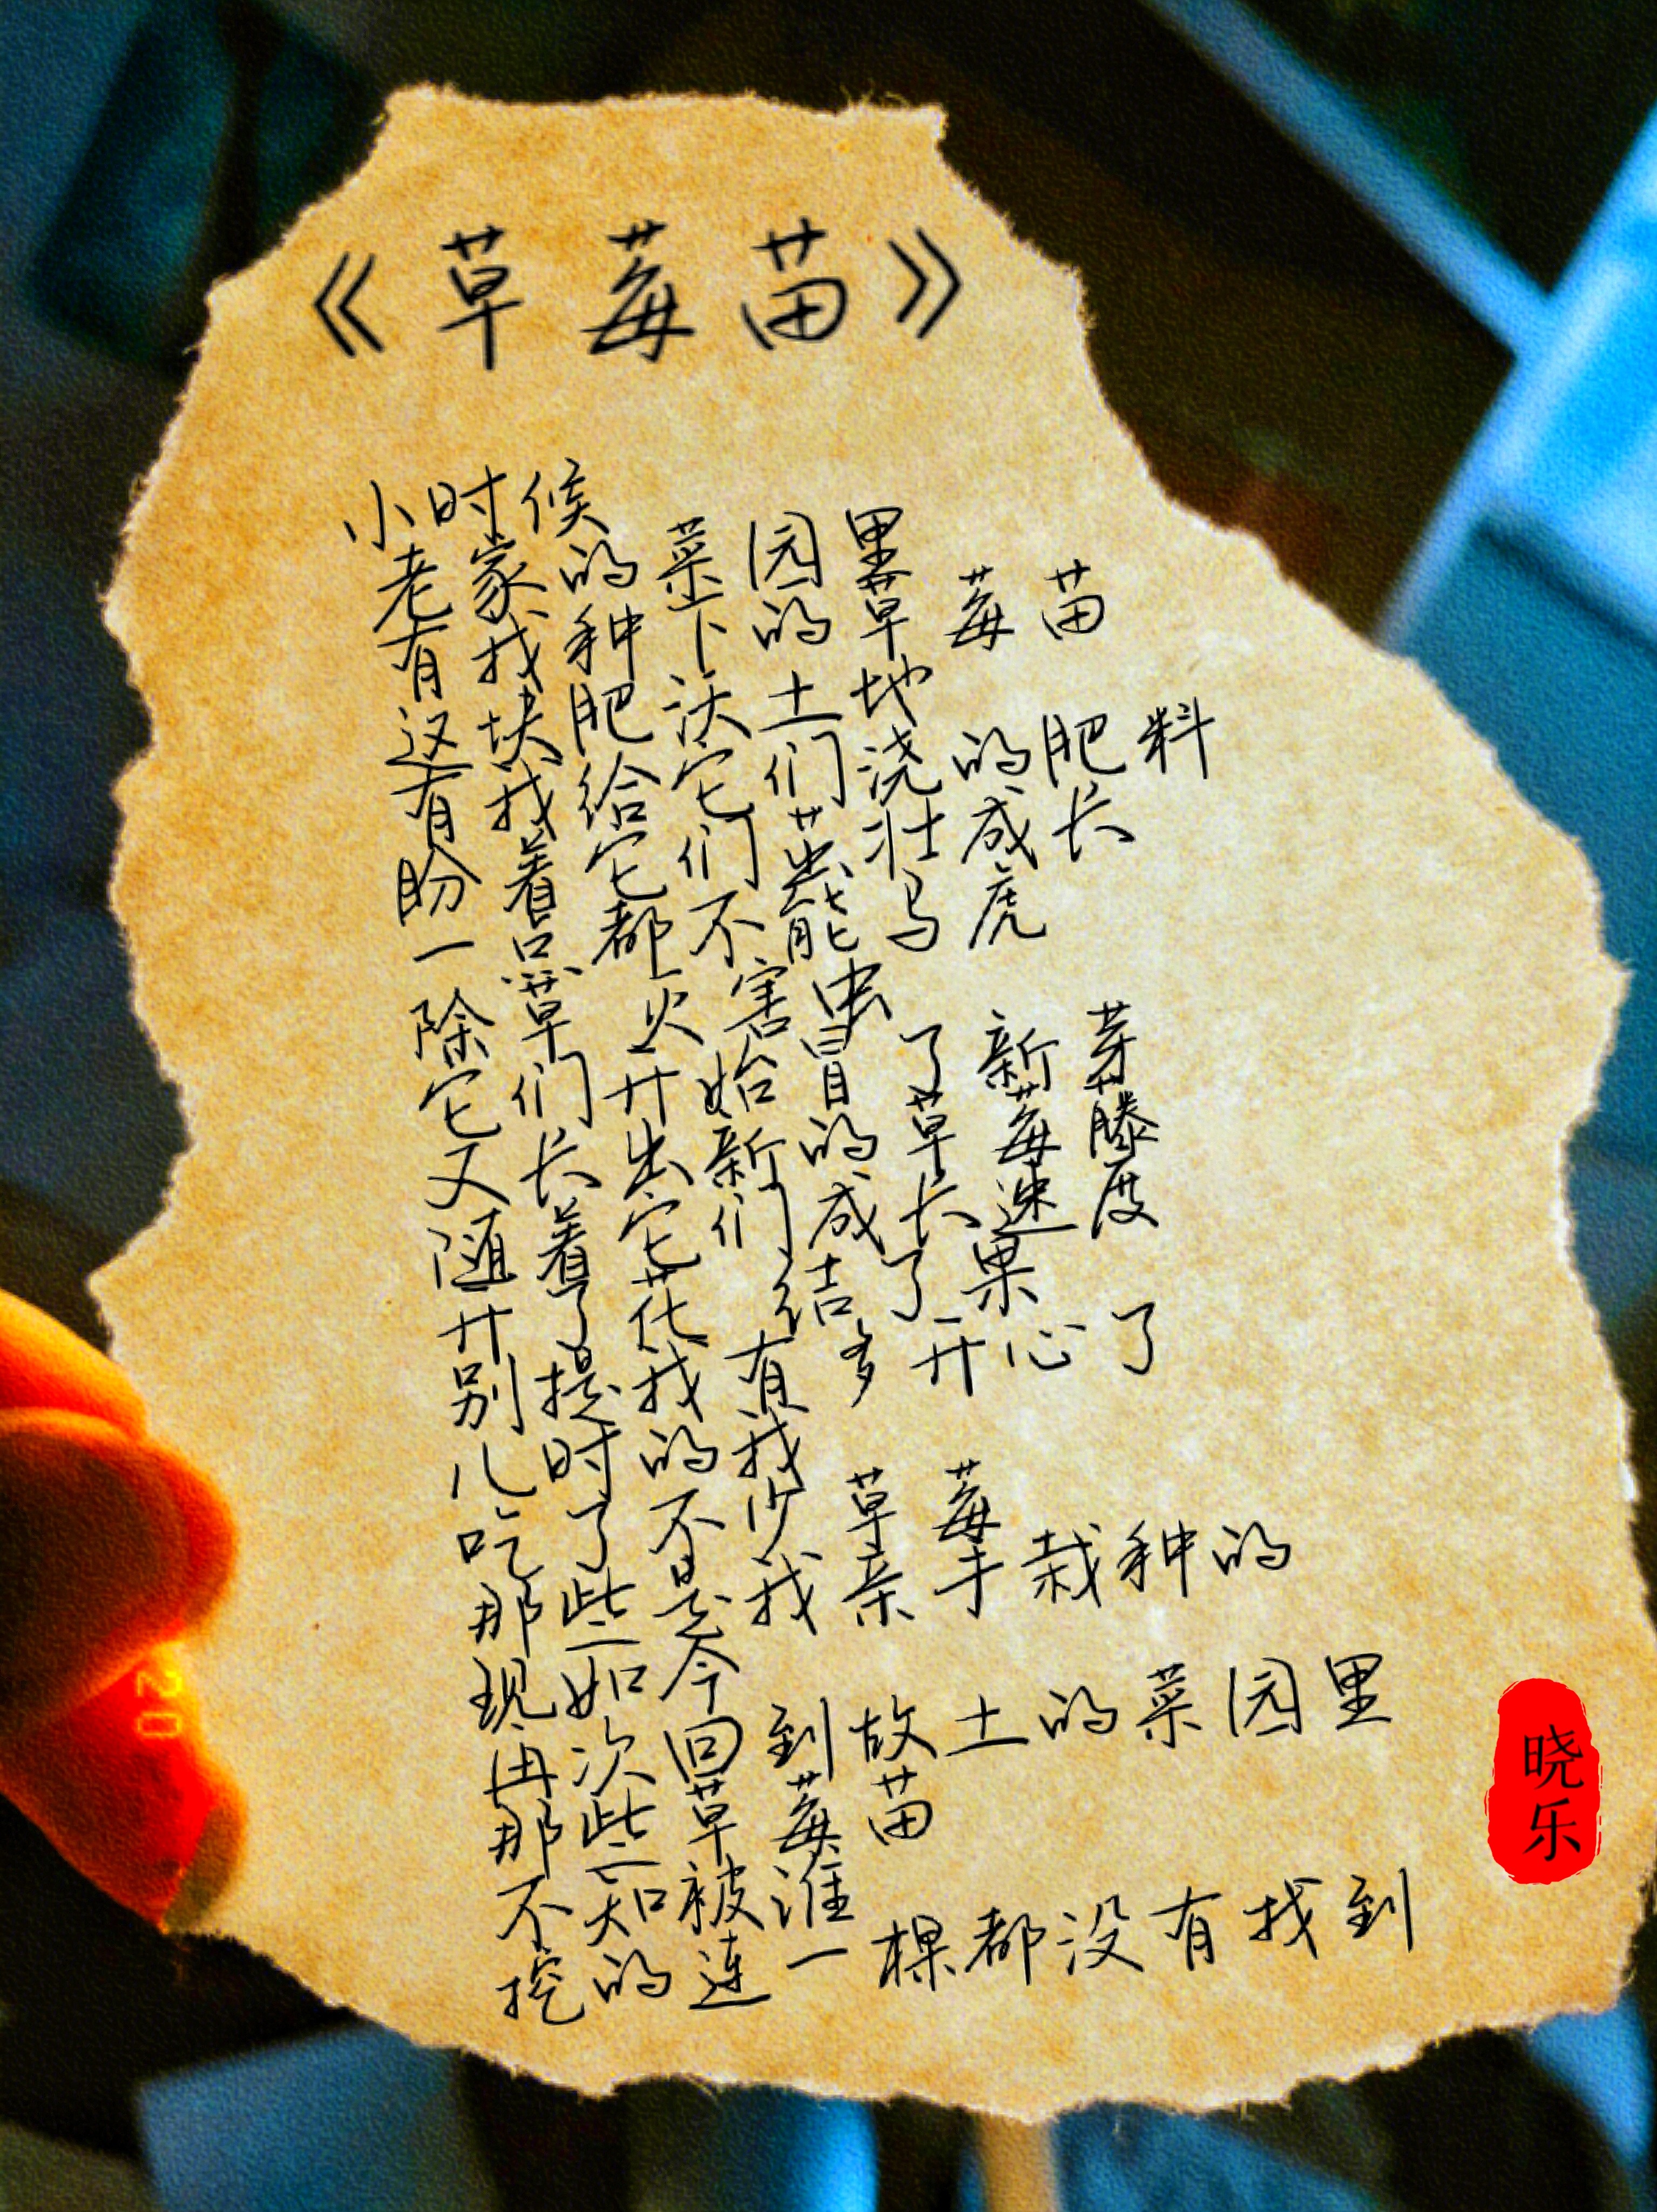 《草莓苗》
小时候
老家的菜园里
有我种下的草莓苗
这块肥沃土地
有我给它们浇的肥料
盼着它们茁壮成长
一点都不能马虎
除草灭害虫
它们开始冒了新芽
又长出新的草莓藤
随着它们成长速度
开了花结了果
别提我有多开心了
儿时的我
吃了不少草莓
那些是我亲手栽种的
现如今
再次回到故土的菜园里
那些草莓苗
不知被谁
挖的连一棵都没有找到
晓乐
20